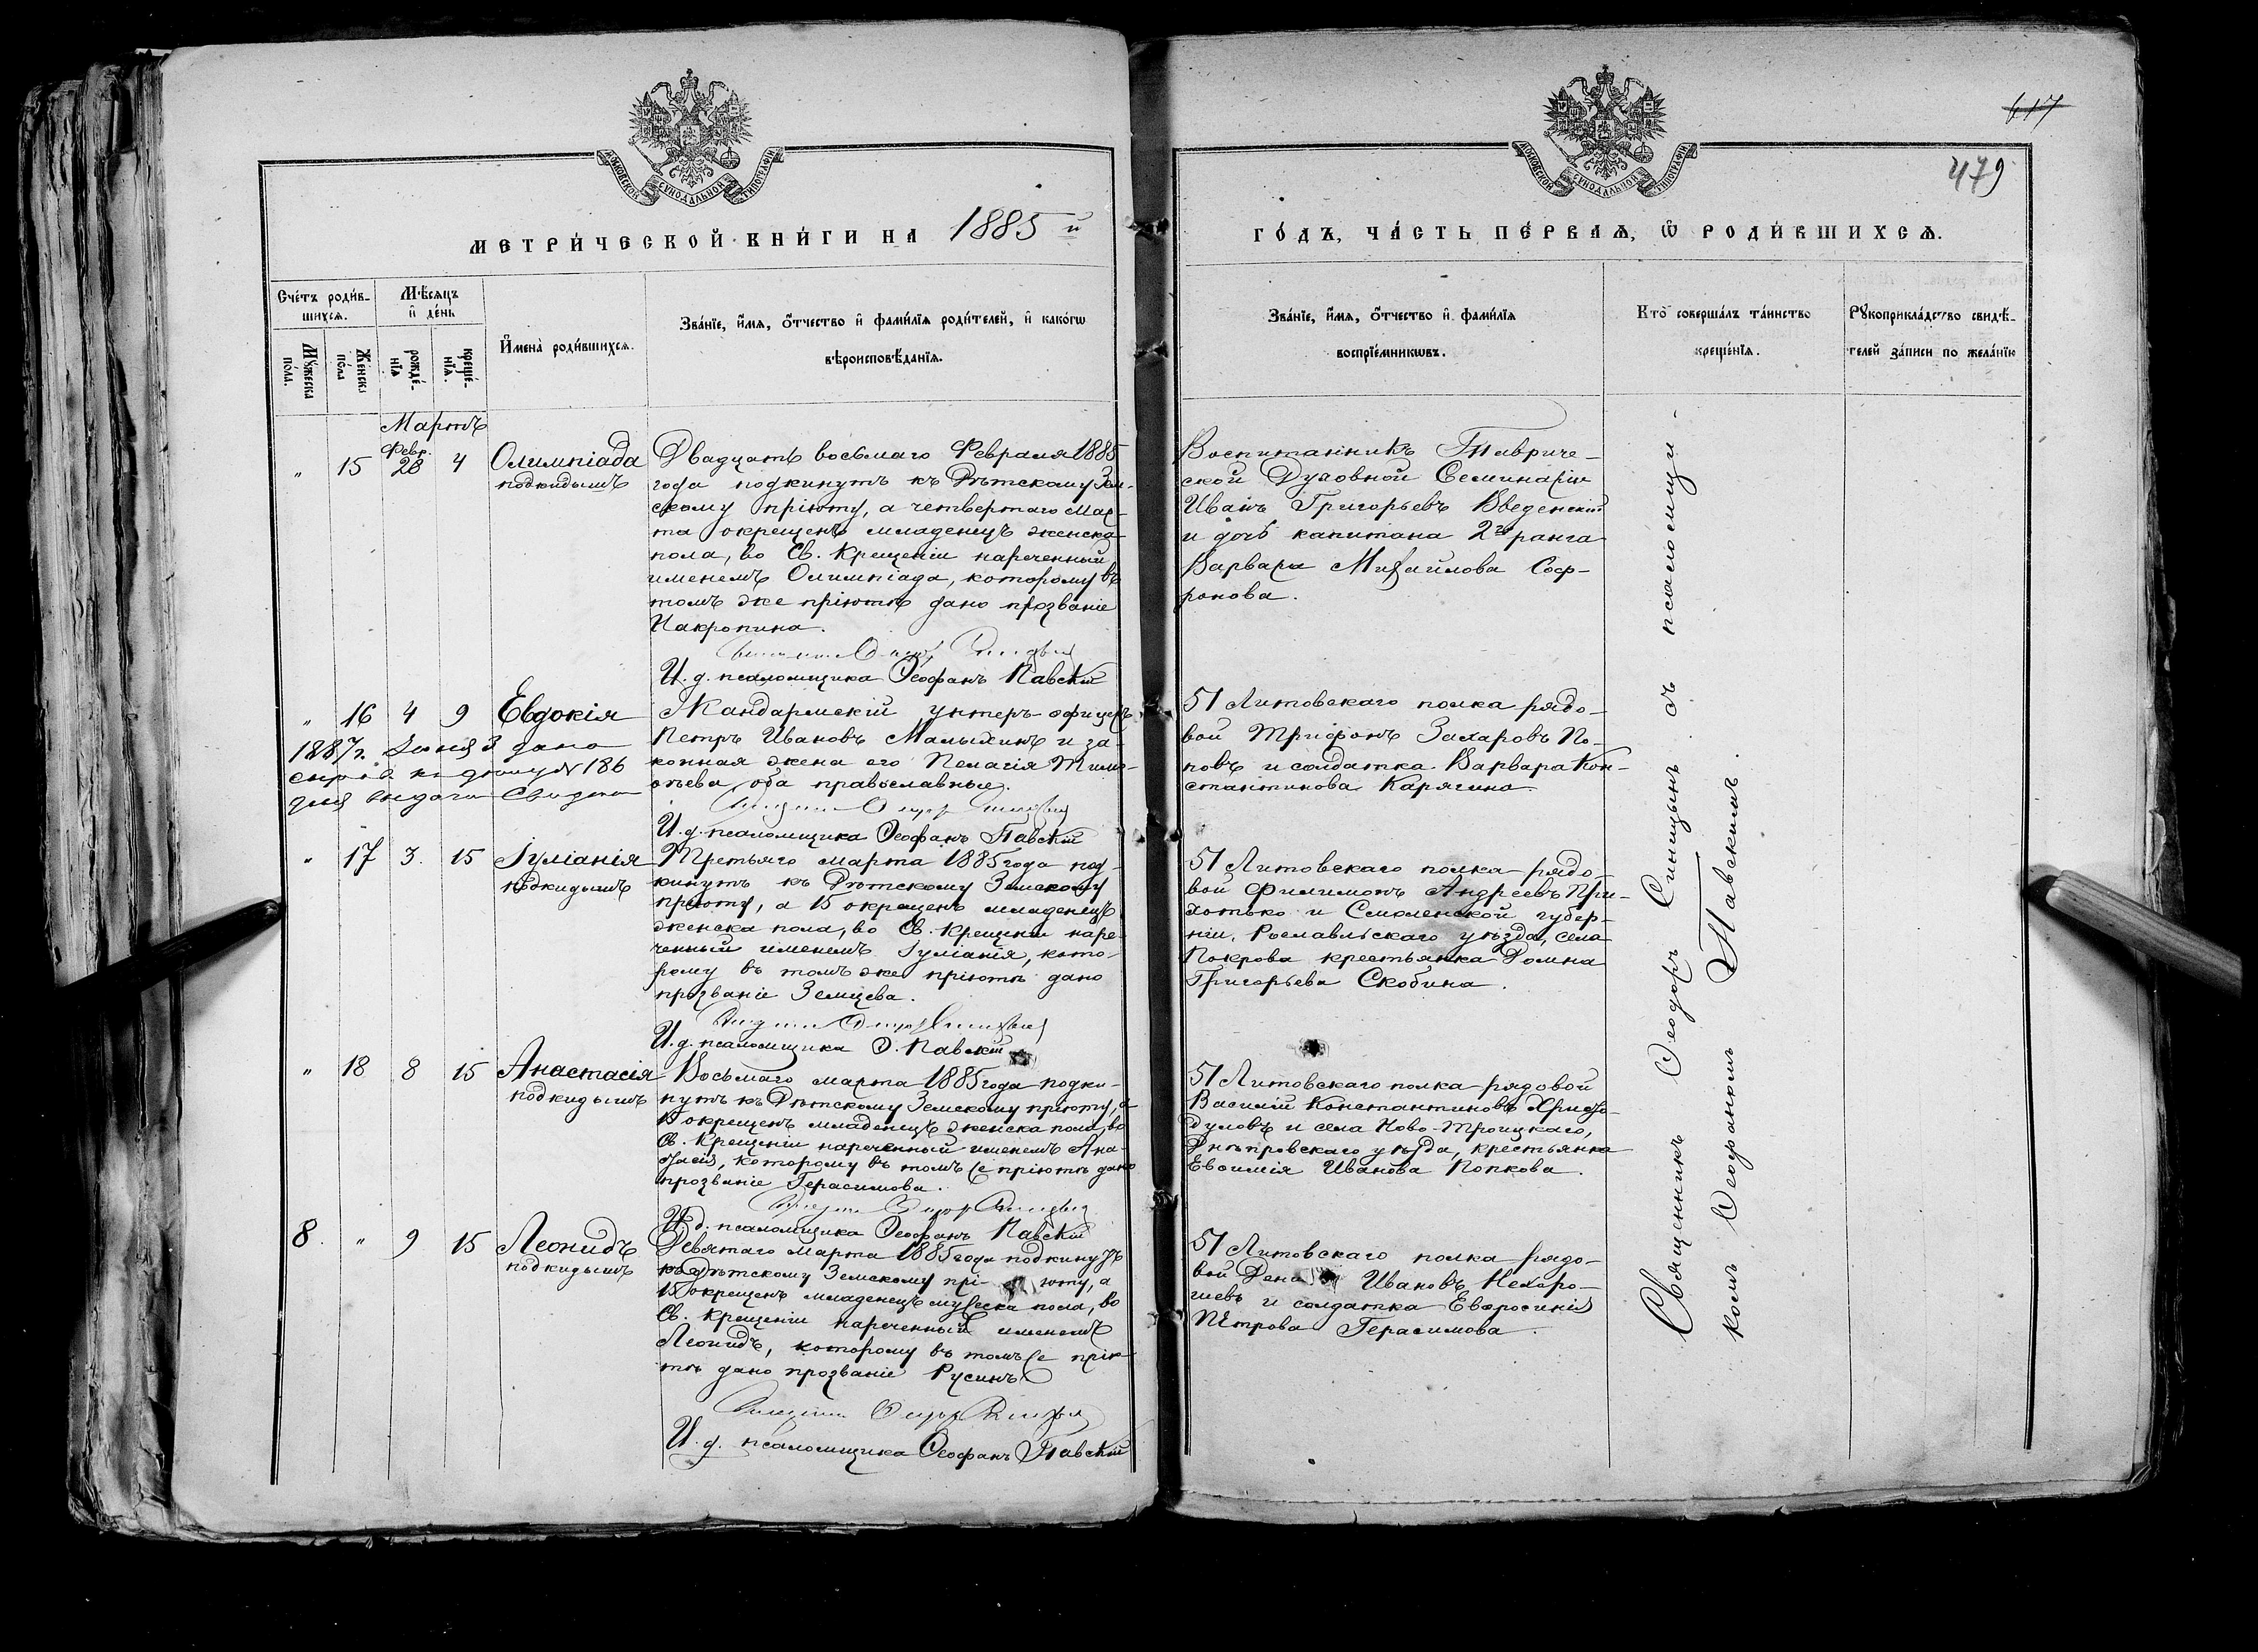 МОСКОВСКОЙ СѴНОДАЛЬНОЙ ТИПОГРАФІИ
МЕТРИ́ЧЕСКОЙ КНИ́ГИ НА 1885 й
Сче́тъ роди́в-
шихсѧ.
Мѣ́сѧцъ
и҆ де́нь
Мꙋ́жеска
по́ла.
Же́нска
по́ла
рожде́-
нїѧ
креще́-
нїѧ.
И҆мена̀ роди́вшихсѧ.
Зва́нїе, и҆́мѧ, ѻ҆́тчество и҆ фами́лїѧ роди́телей, и҆ како́гѡ
вѣроисповѣ́данїѧ.
Мартъ
„ 15 Февр. 28 4 Олимпіада
подкидышъ
Двадцать восьмаго Февраля 1885
года подкинутъ къ Дѣтскому Зем-
скому пріюту, а четвертаго Мар-
та окрещенъ младенецъ женска
пола, во Св. Крещеніи нареченный
именемъ Олимпіада, которому въ
томъ же пріютѣ дано прозваніе
Накропина.
И. д. псаломщика Ѳеофанъ Павскій
„ 16 4 9 Евдокія
1887 г. Іюня 3 дано
№ 186
Жандармскій унтеръ-офицеръ
Петръ Ивановъ Малыхинъ и за-
конная жена его Пелагія Тимо-
ѳеева, оба православные.
И. д. псаломщика Ѳеофанъ Павскій
„ 17 3. 15 Іуліанія
подкидышъ
Третьяго марта 1885 года под-
кинутъ къ Дѣтскому Земскому
пріюту, а 15 окрещенъ младенецъ
женска пола, во Св. Крещеніи наре-
ченный именемъ Іуліанія, кото-
рому въ томъ же пріютѣ дано
прозваніе Земцева.
И. д. псаломщика Ѳ. Павскій
„ 18 8 15 Анастасія
подкидышъ
Восьмаго марта 1885 года подки-
нутъ къ Дѣтскому Земскому пріюту, а
15 окрещенъ младенецъ женска пола, во
Св. Крещеніи нареченный именемъ Ана-
стасія, которому въ томъ же пріютѣ дано
прозваніе Герасимова.
И. д. псаломщика Ѳеофанъ Павскій
8. „ 9 15 Леонидъ
подкидышъ
Девятаго марта 1885 года подкинутъ
къ Дѣтскому Земскому прі- юту, а
15 окрещенъ младенецъ мужеска пола, во
Св. Крещеніи нареченный именемъ
Леонидъ, которому въ томъ же прію-
тѣ дано прозваніе Русинъ.
И. д. псаломщика Ѳеофанъ Павскій
МОСКОВСКОЙ СѴНОДАЛЬНОЙ ТИПОГРАФІИ
417
479
ГО́ДЪ, ЧА́СТЬ ПЕ́РВАѦ, Ѽ РОДИ́ВШИХСѦ.
Зва́нїе, и҆́мѧ, ѻ҆́тчество и҆ фами́лїѧ
воспрїе́мникѡвъ.
Кто̀ соверша́лъ та́инство
креще́нїѧ.
Рꙋкоприкла́дство свидѣ́-
телей за́писи по жела́нїю
Воспитанникъ Тавриче-
ской Духовной Семинаріи
Иванъ Григорьевъ Введенскій
и дочь капитана 2го ранга
Варвара Михаилова Соф-
ронова.
51 Литовскаго полка рядо-
вой Трифонъ Захаровъ По-
повъ и солдатка Варвара Кон-
стантинова Карягина.
51 Литовскаго полка рядо-
вой Филимонъ Андреевъ При-
хотько и Смоленской губер-
ніи, Рославльскаго уѣзда, села
Покрова крестьянка Домна
Григорьева Скобина.
51 Литовскаго полка рядовой
Василій Константиновъ Христо-
дуловъ и села Ново-Троицкаго,
Днѣпровскаго уѣзда, крестьянка
Евѳимія Иванова Попкова.
51 Литовскаго полка рядо-
вой Ивановъ Нехоро-
шевъ и солдатка Евфросинія
Петрова Герасимова.
Священникъ Ѳеодоръ Синицынъ съ псаломщи-
комъ Ѳеофаномъ Павскимъ.